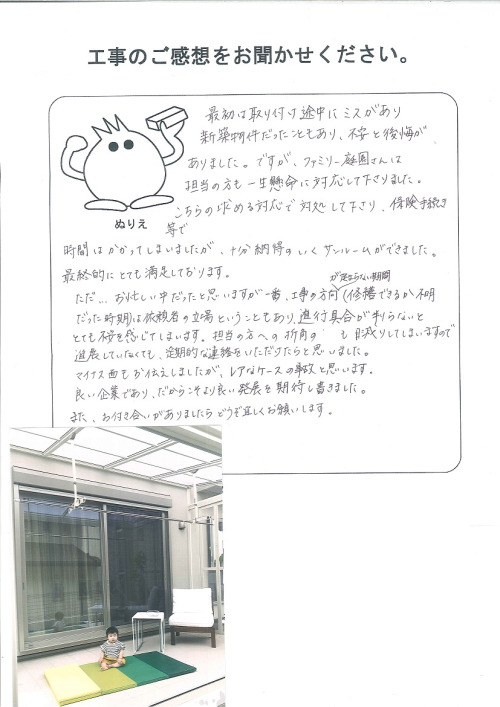 工事のご感想をお聞かせください。
最初は取り付け途中にミスがあり
新築物件だったこともあり、不安と後悔が
ありました。ですが、ファミリー庭園さんは
担当の方も一生懸命に対応して下さりました。
こちらの求める対応で対処して下さり、保険手続き
等で
ぬりえ
時間はかかってしまいましたが、十分納得のいくサンルームができました。
最終的にとても満足しております。
が定まらない期間
ただ…お忙しい中だったと思いますが一番、工事の方向(修繕できるか不明
だった時期)は依頼者の立場ということもあり、進行具合が判らないと
とても不安を感じてしまいます。担当の方への折角の も曇ってしまいますので
進展していなくても、定期的な連絡をいただけたらと思いました。
マイナス面もお伝えしましたが、レアなケースの事故と思います。
良い企業であり、だからこそより良い発展を期待し書きました。
また、お付き合いがありましたらどうぞ宜しくお願いします。